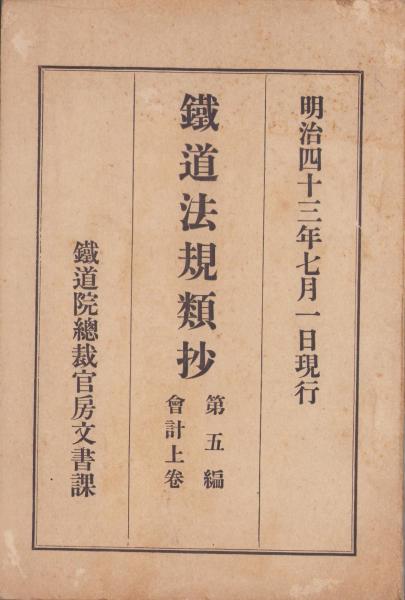 明治四十三年七月一日現行
鐵道法規類抄
第五編
會計上卷
鐵道院總裁官房文書課